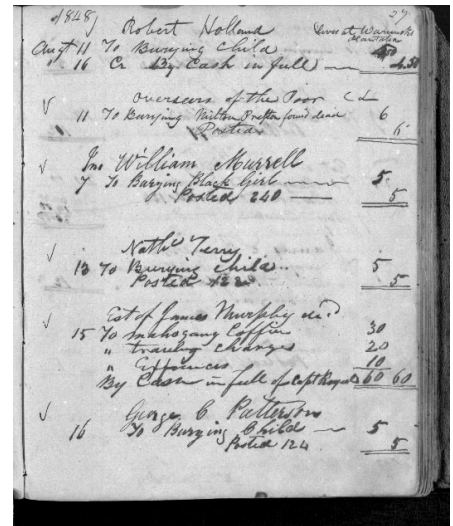 1848 37
Robert Holland Lives at Warwicks
Plantation
Augt 11 To Burying Child 4.50
" 16 Cr By Cash in full 4.50
Overseers of the Poor
11 To Burying Milton Preston found dead 6
Posted 6
Jno William Murrell
7 To Burying Black Girl 5
Posted 240 5
Nathl Terry
13 To Burying Child 5
Posted 5
Est of James Murphy decd
15 To Mahogany Coffin 30
" Charges 20
" 10
By Cash in full of Capt 60 60
George C Patterson
16 To Burying Child 5
Posted 124 5